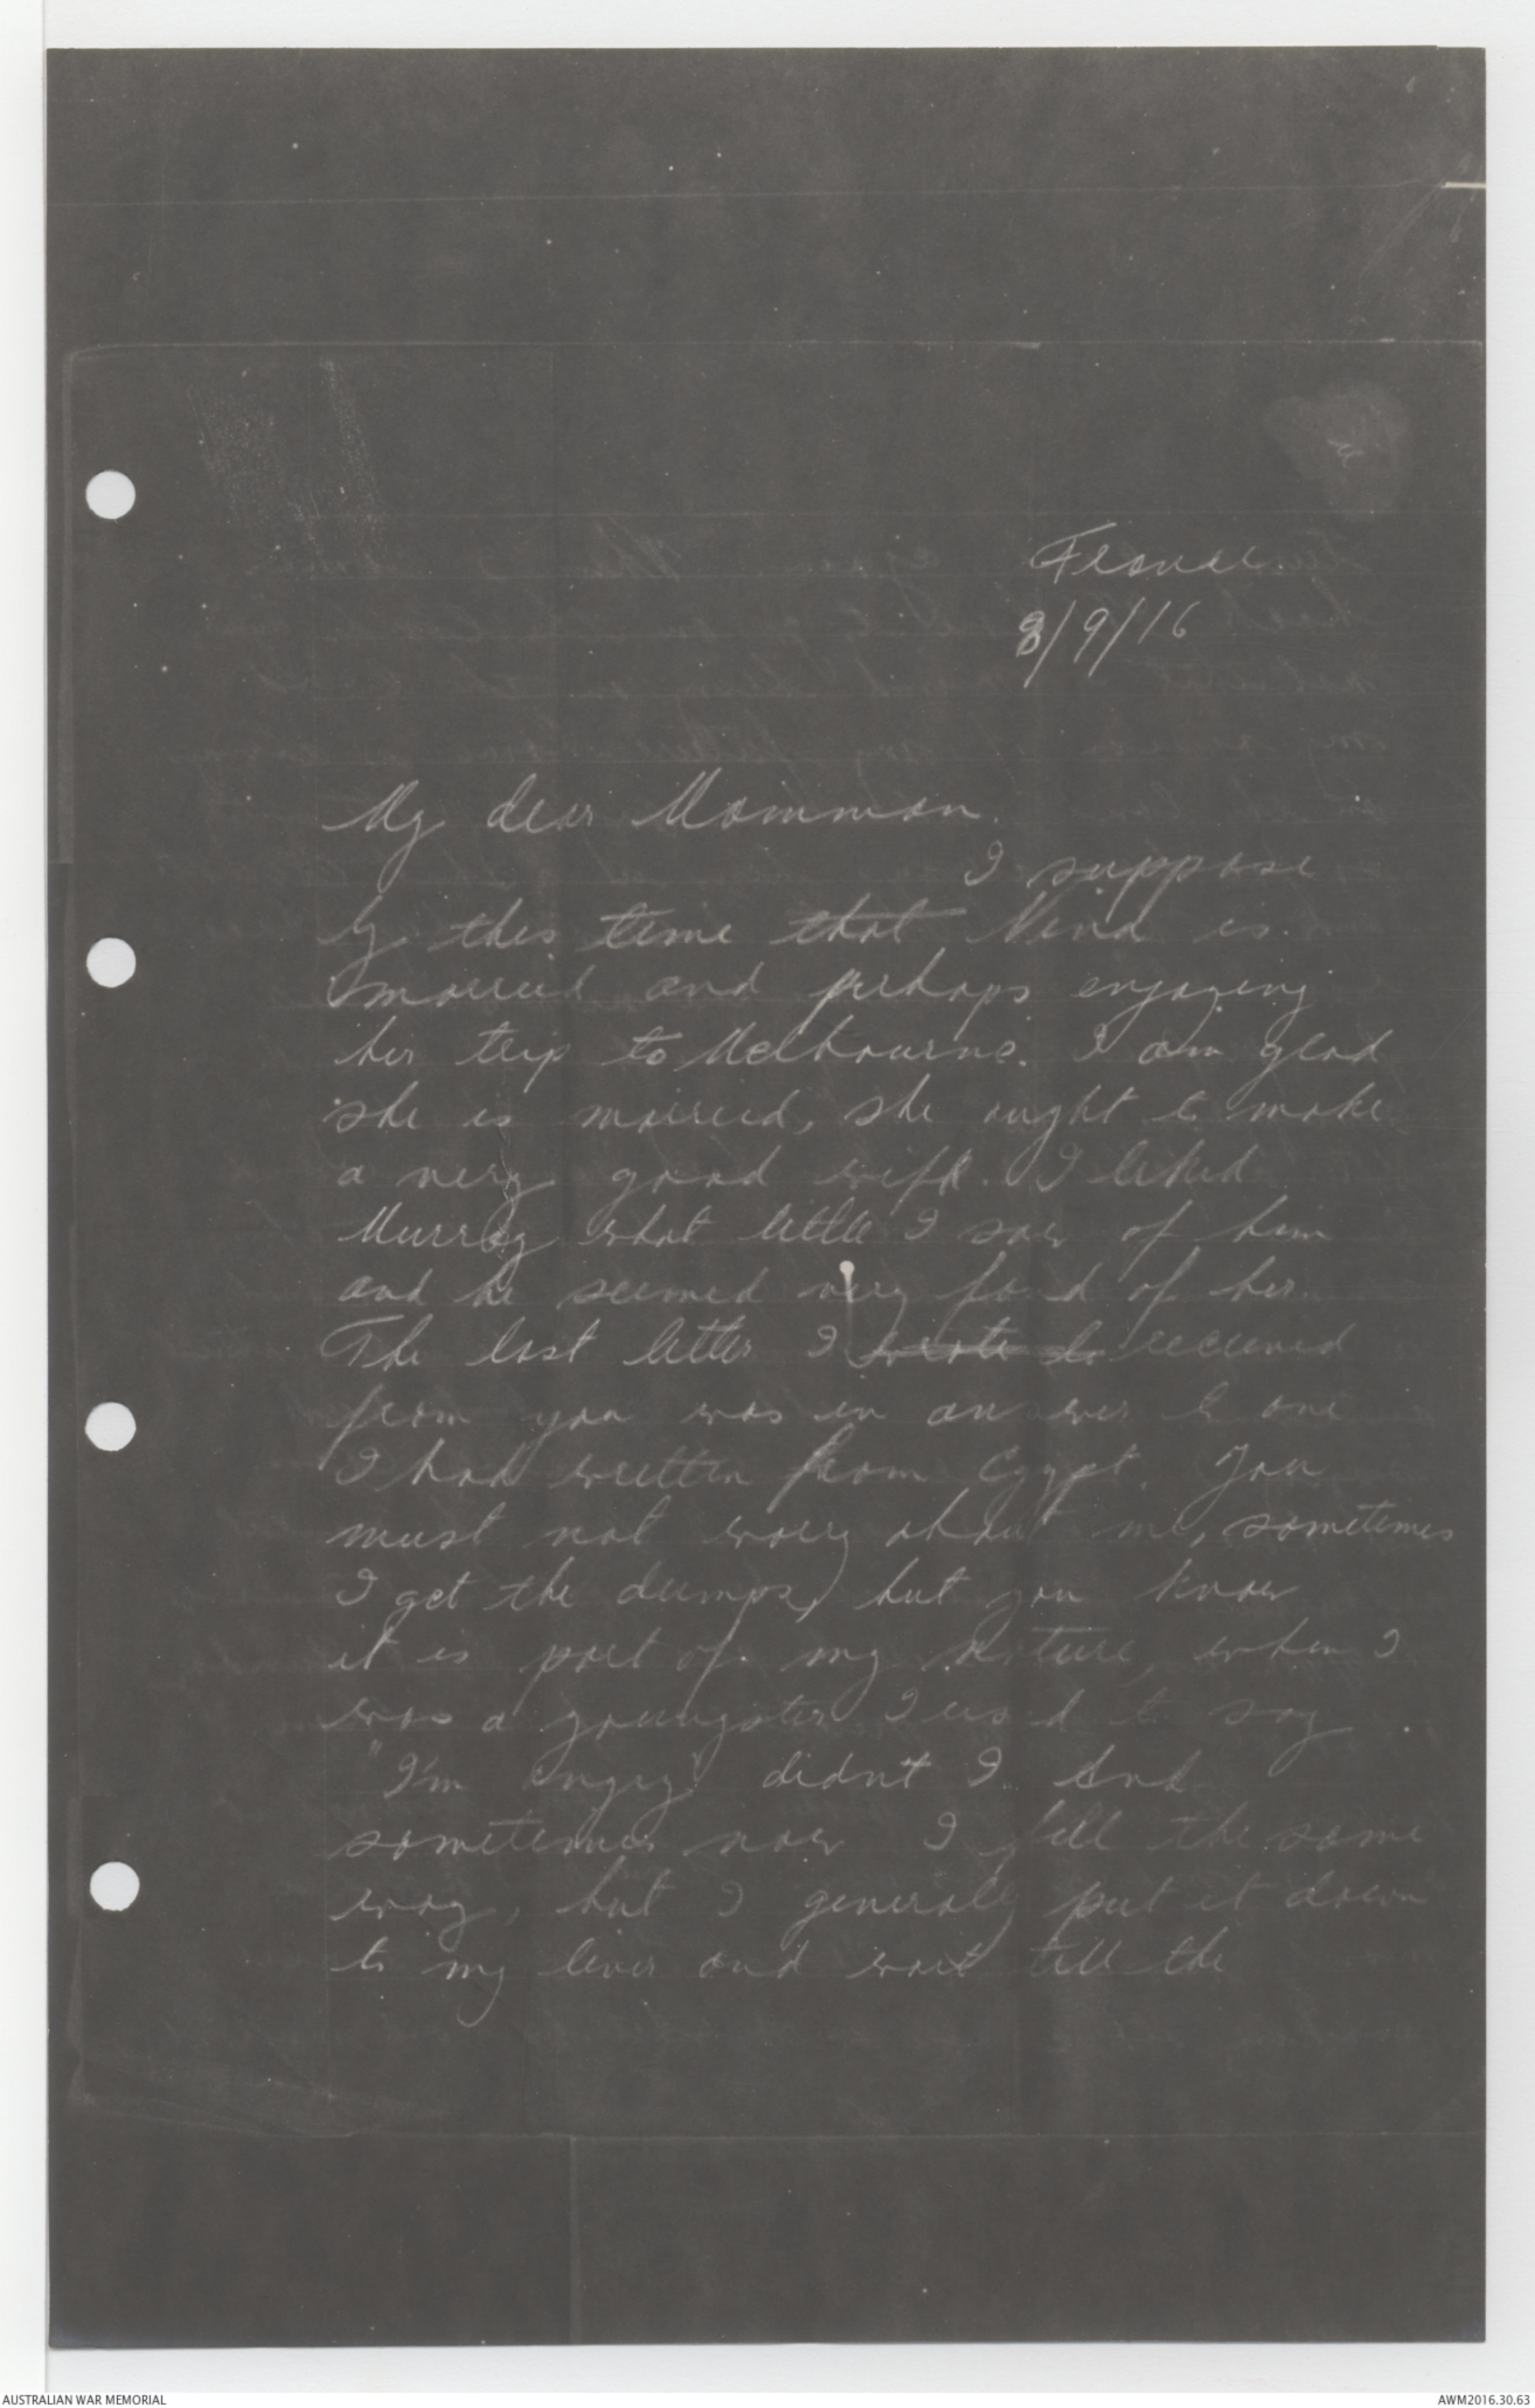 France.
8/9/16
My dear Mamman.
I suppose
by this time that Nina is
married and perhaps enjoying
her trip to Melbourne. I am glad
she is married, she ought to make
a very good wife. I liked
Murray what little I saw of him
and he seemed very fond of her.
The last letter I wrote to received
from you was in answer to one
I had written from Egypt. You
must not worry about me, sometimes
I get the dumps, but you know
it is part of my nature, when I
was a youngster I used to say
"I'm angry" didn't I. And
sometimes now I fell the same
way, but I generaly put it down
to my liver and wait till the
AUSTRALIAN WAR MEMORIAL
AWM2016.30.63